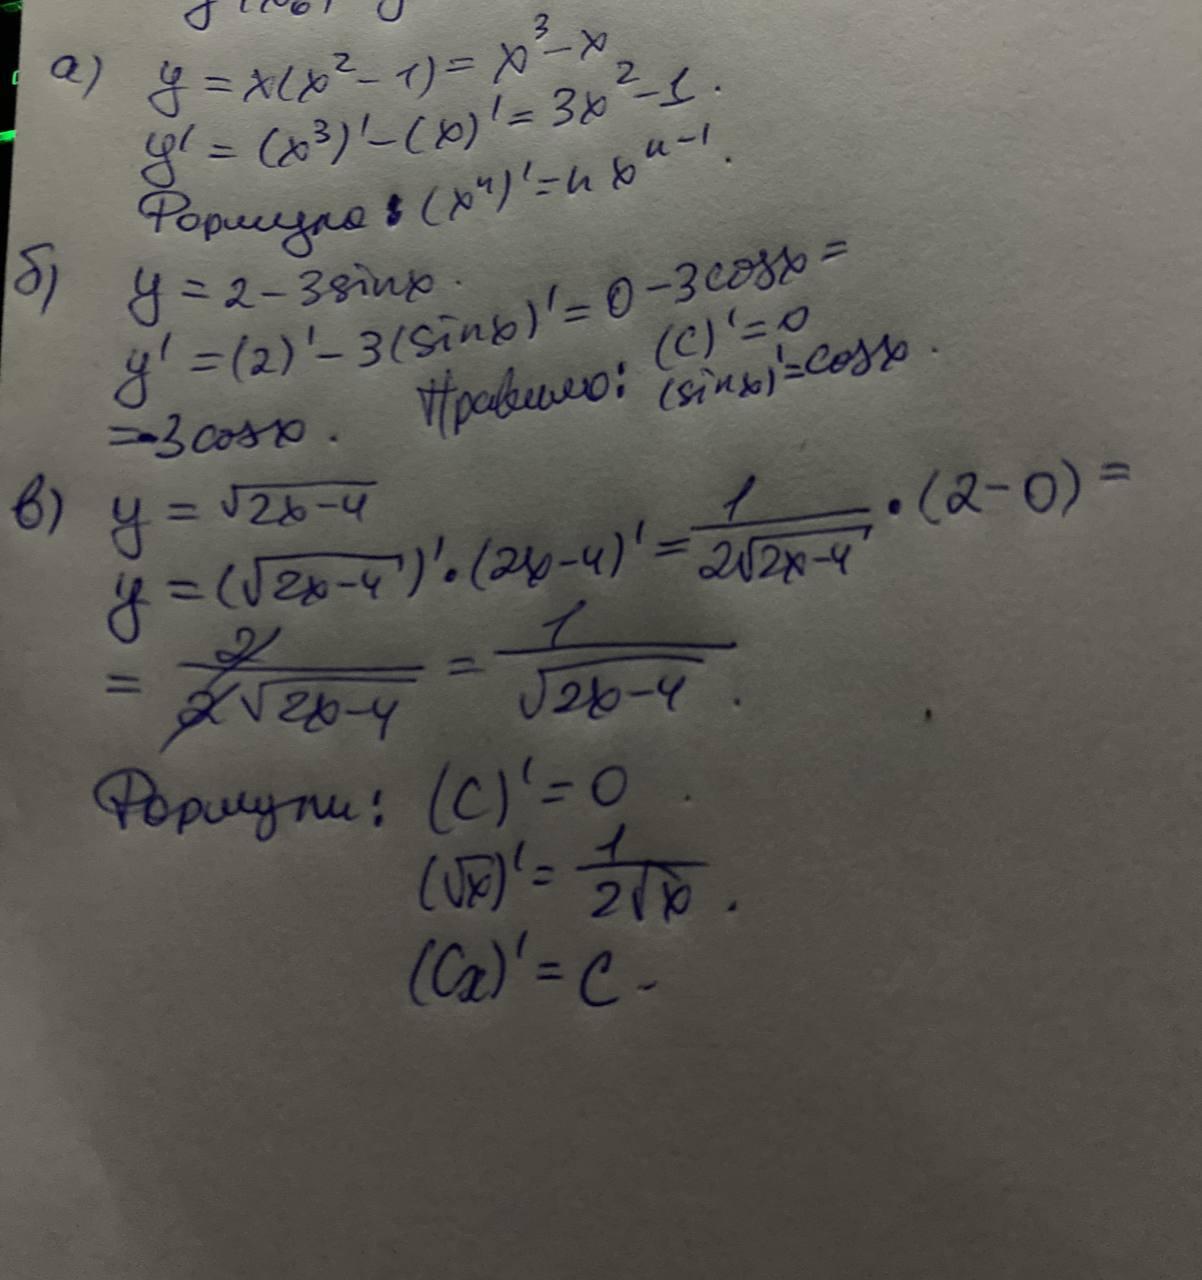 а) y = x(x² - 1) = x³ - x
y' = (x³)' - (x)' = 3x² - 1.
Формула: (xⁿ)' = n xⁿ⁻¹.
б) y = 2 - 3sinx.
y' = (2)' - 3(sinx)' = 0 - 3cosx =
= -3cosx. Правило: (C)' = 0
(sinx)' = cosx.
в) y = √(2x-4)
y = (√(2x-4))' · (2x-4)' = 1/(2√(2x-4)) · (2-0) =
= 2/(2√(2x-4)) = 1/√(2x-4).
Формули: (C)' = 0.
(√x)' = 1/(2√x).
(Cx)' = C.